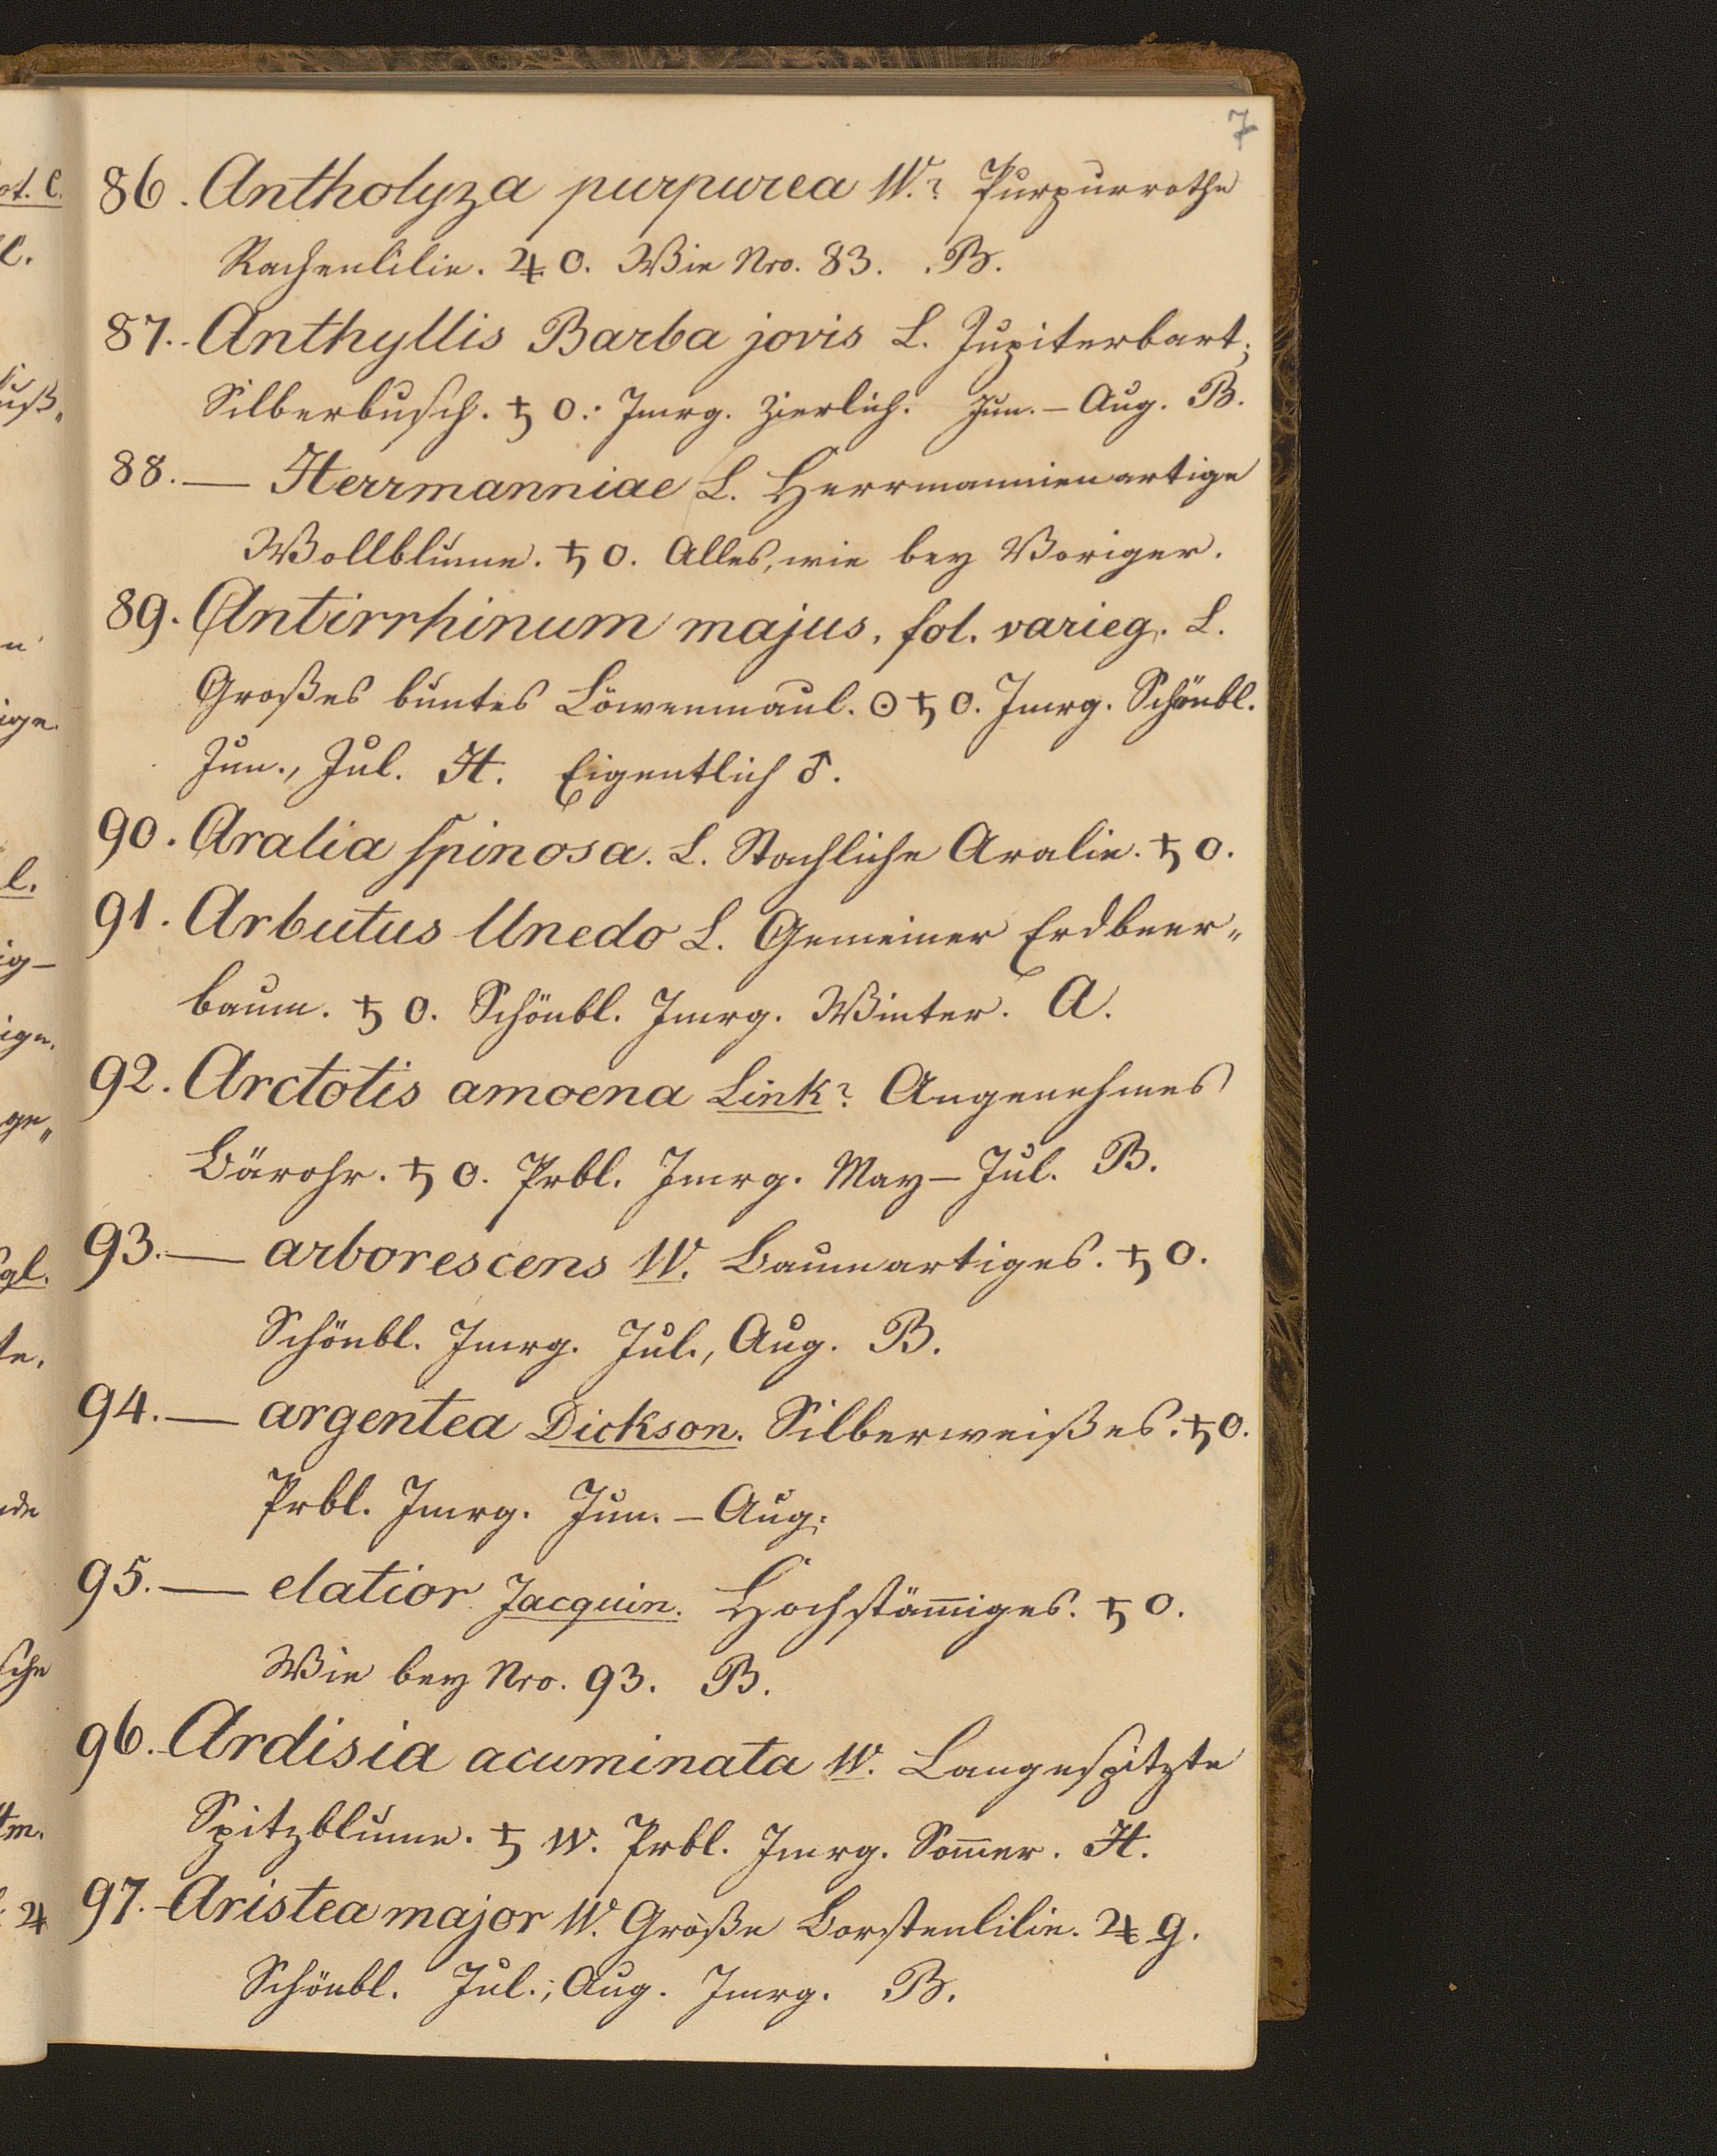 7
86. Antholyza purpurea W.? Purpurrothe
Rachenlilie. ♃ O. Wie Nro. 83. B.
87. Anthyllis Barba jovis L. Jupiterbart;
Silberbusch. ♄ O. Imrg. Zierlich. Jun. – Aug. B.
88. — Herrmanniae L. Herrmannienartige
Wollblume. ♄ O. Alles, wie bey Voriger.
89. Antirrhinum majus, fol. varieg. L.
Großes buntes Löwenmaul. ⊙ ♄ O. Imrg. Schönbl.
Jun., Jul. H. Eigentlich ♂.
90. Aralia spinosa. L. Stachliche Aralie. ♄ O.
91. Arbutus Unedo L. Gemeiner Erdbeer„
baum. ♄ O. Schönbl. Imrg. Winter. A.
92. Arctotis amoena Link? Angenehmes
Bärohr. ♄ O. Prbl. Imrg. May – Jul. B.
93. — arborescens W. Baumartiges. ♄ O.
Schönbl. Imrg. Jul., Aug. B.
94. — argentea Dickson. Silberweißes. ♄ O.
Prbl. Imrg. Jun. – Aug.
95. — elatior Jacquin. Hochstäm̅iges. ♄ O.
Wie bey Nro. 93. B.
96. Ardisia acuminata W. Langespitzte
Spitzblume. ♄ W. Prbl. Imrg. Som̅er. H.
97. Aristea major W. Größe Borstenlilie. ♃ g.
Schönbl. Jul., Aug. Imrg. B.